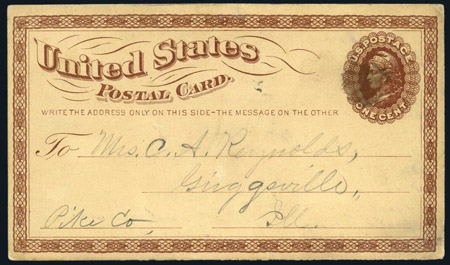 United States
Postal Card.
U.S. POSTAGE
ONE CENT
WRITE THE ADDRESS ONLY ON THIS SIDE-THE MESSAGE ON THE OTHER
To Mrs. C. A. Reynolds,
Griggsville,
Pike Co, Ill.